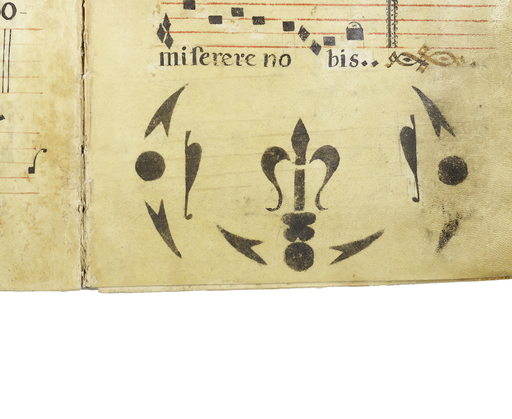 o
miſerere no bis..